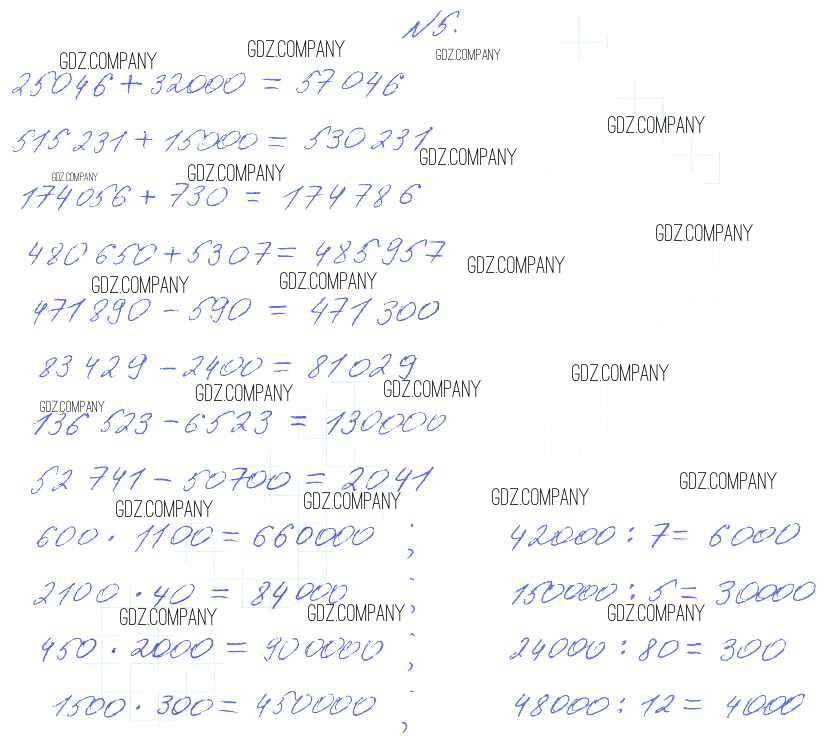 N5.
GDZ.COMPANY GDZ.COMPANY GDZ.COMPANY
25046 + 32000 = 57046
GDZ.COMPANY
515 231 + 15000 = 530 231
GDZ.COMPANY
GDZ.COMPANY GDZ.COMPANY
174 056 + 730 = 174 786
GDZ.COMPANY
480 650 + 5307 = 485 957
GDZ.COMPANY
GDZ.COMPANY GDZ.COMPANY
471 890 - 590 = 471 300
83 429 - 2400 = 81029
GDZ.COMPANY
GDZ.COMPANY GDZ.COMPANY GDZ.COMPANY
136 523 - 6523 = 130000
52 741 - 50700 = 2041
GDZ.COMPANY
GDZ.COMPANY GDZ.COMPANY GDZ.COMPANY
600 · 1100 = 660000 ; 42000 : 7 = 6000
2100 · 40 = 84000 ; 150000 : 5 = 30000
GDZ.COMPANY GDZ.COMPANY GDZ.COMPANY
450 · 2000 = 900000 ; 24000 : 80 = 300
1500 · 300 = 450000 ; 48000 : 12 = 4000